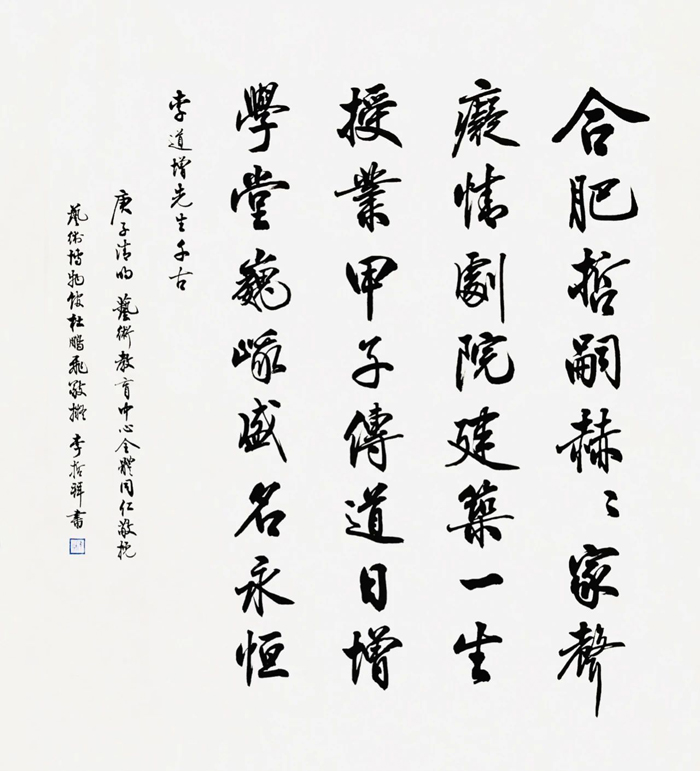 合肥哲嗣赫〻家聲
癡情劇院建築一生
授業甲子傳道日增
學堂巍峨盛名永恒
李道增先生千古
庚子清明 藝術教育中心全體同仁敬挽
藝術博物館杜鵬飛敬撰 李哲群書